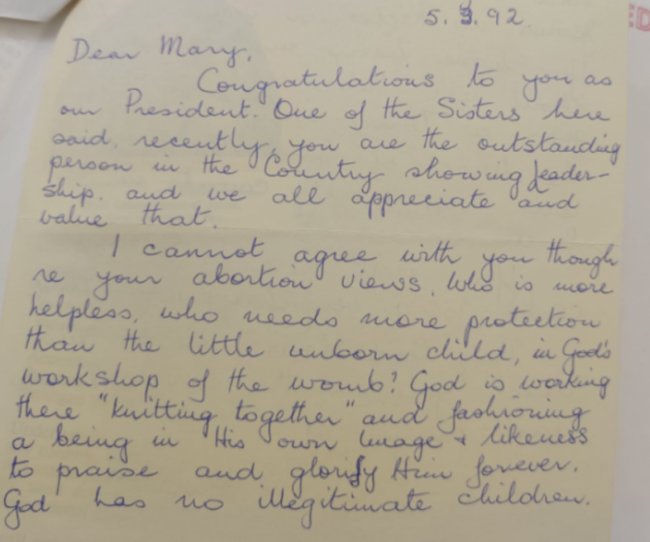 5.3.92.
Dear Mary,
Congratulations to you as
our President. One of the Sisters here
said, recently, you are the outstanding
person in the Country showing leader-
ship. and we all appreciate and
value that.
I cannot agree with you though
re your abortion views. Who is more
helpless, who needs more protection
than the little unborn child, in God's
workshop of the womb? God is working
there "knitting together" and fashioning
a being in His own Image & likeness
to praise and glorify Him forever.
God has no illegitimate children.